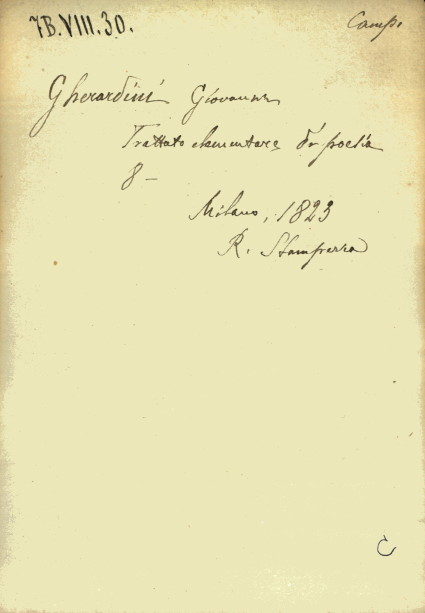 7B.VIII.30.
Camp.
Gherardini Giovanni
Trattato elementare di poesia
8–
Milano, 1823
R. Stamperia
C